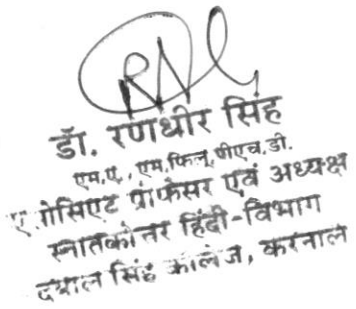 डॉ. रणधीर सिंह
एम.ए., एम.फिल, पीएच.डी.
ए.ोसिएट प्रोफेसर एवं अध्यक्ष
स्नातकोत्तर हिंदी-विभाग
दयाल सिंह कालेज, करनाल